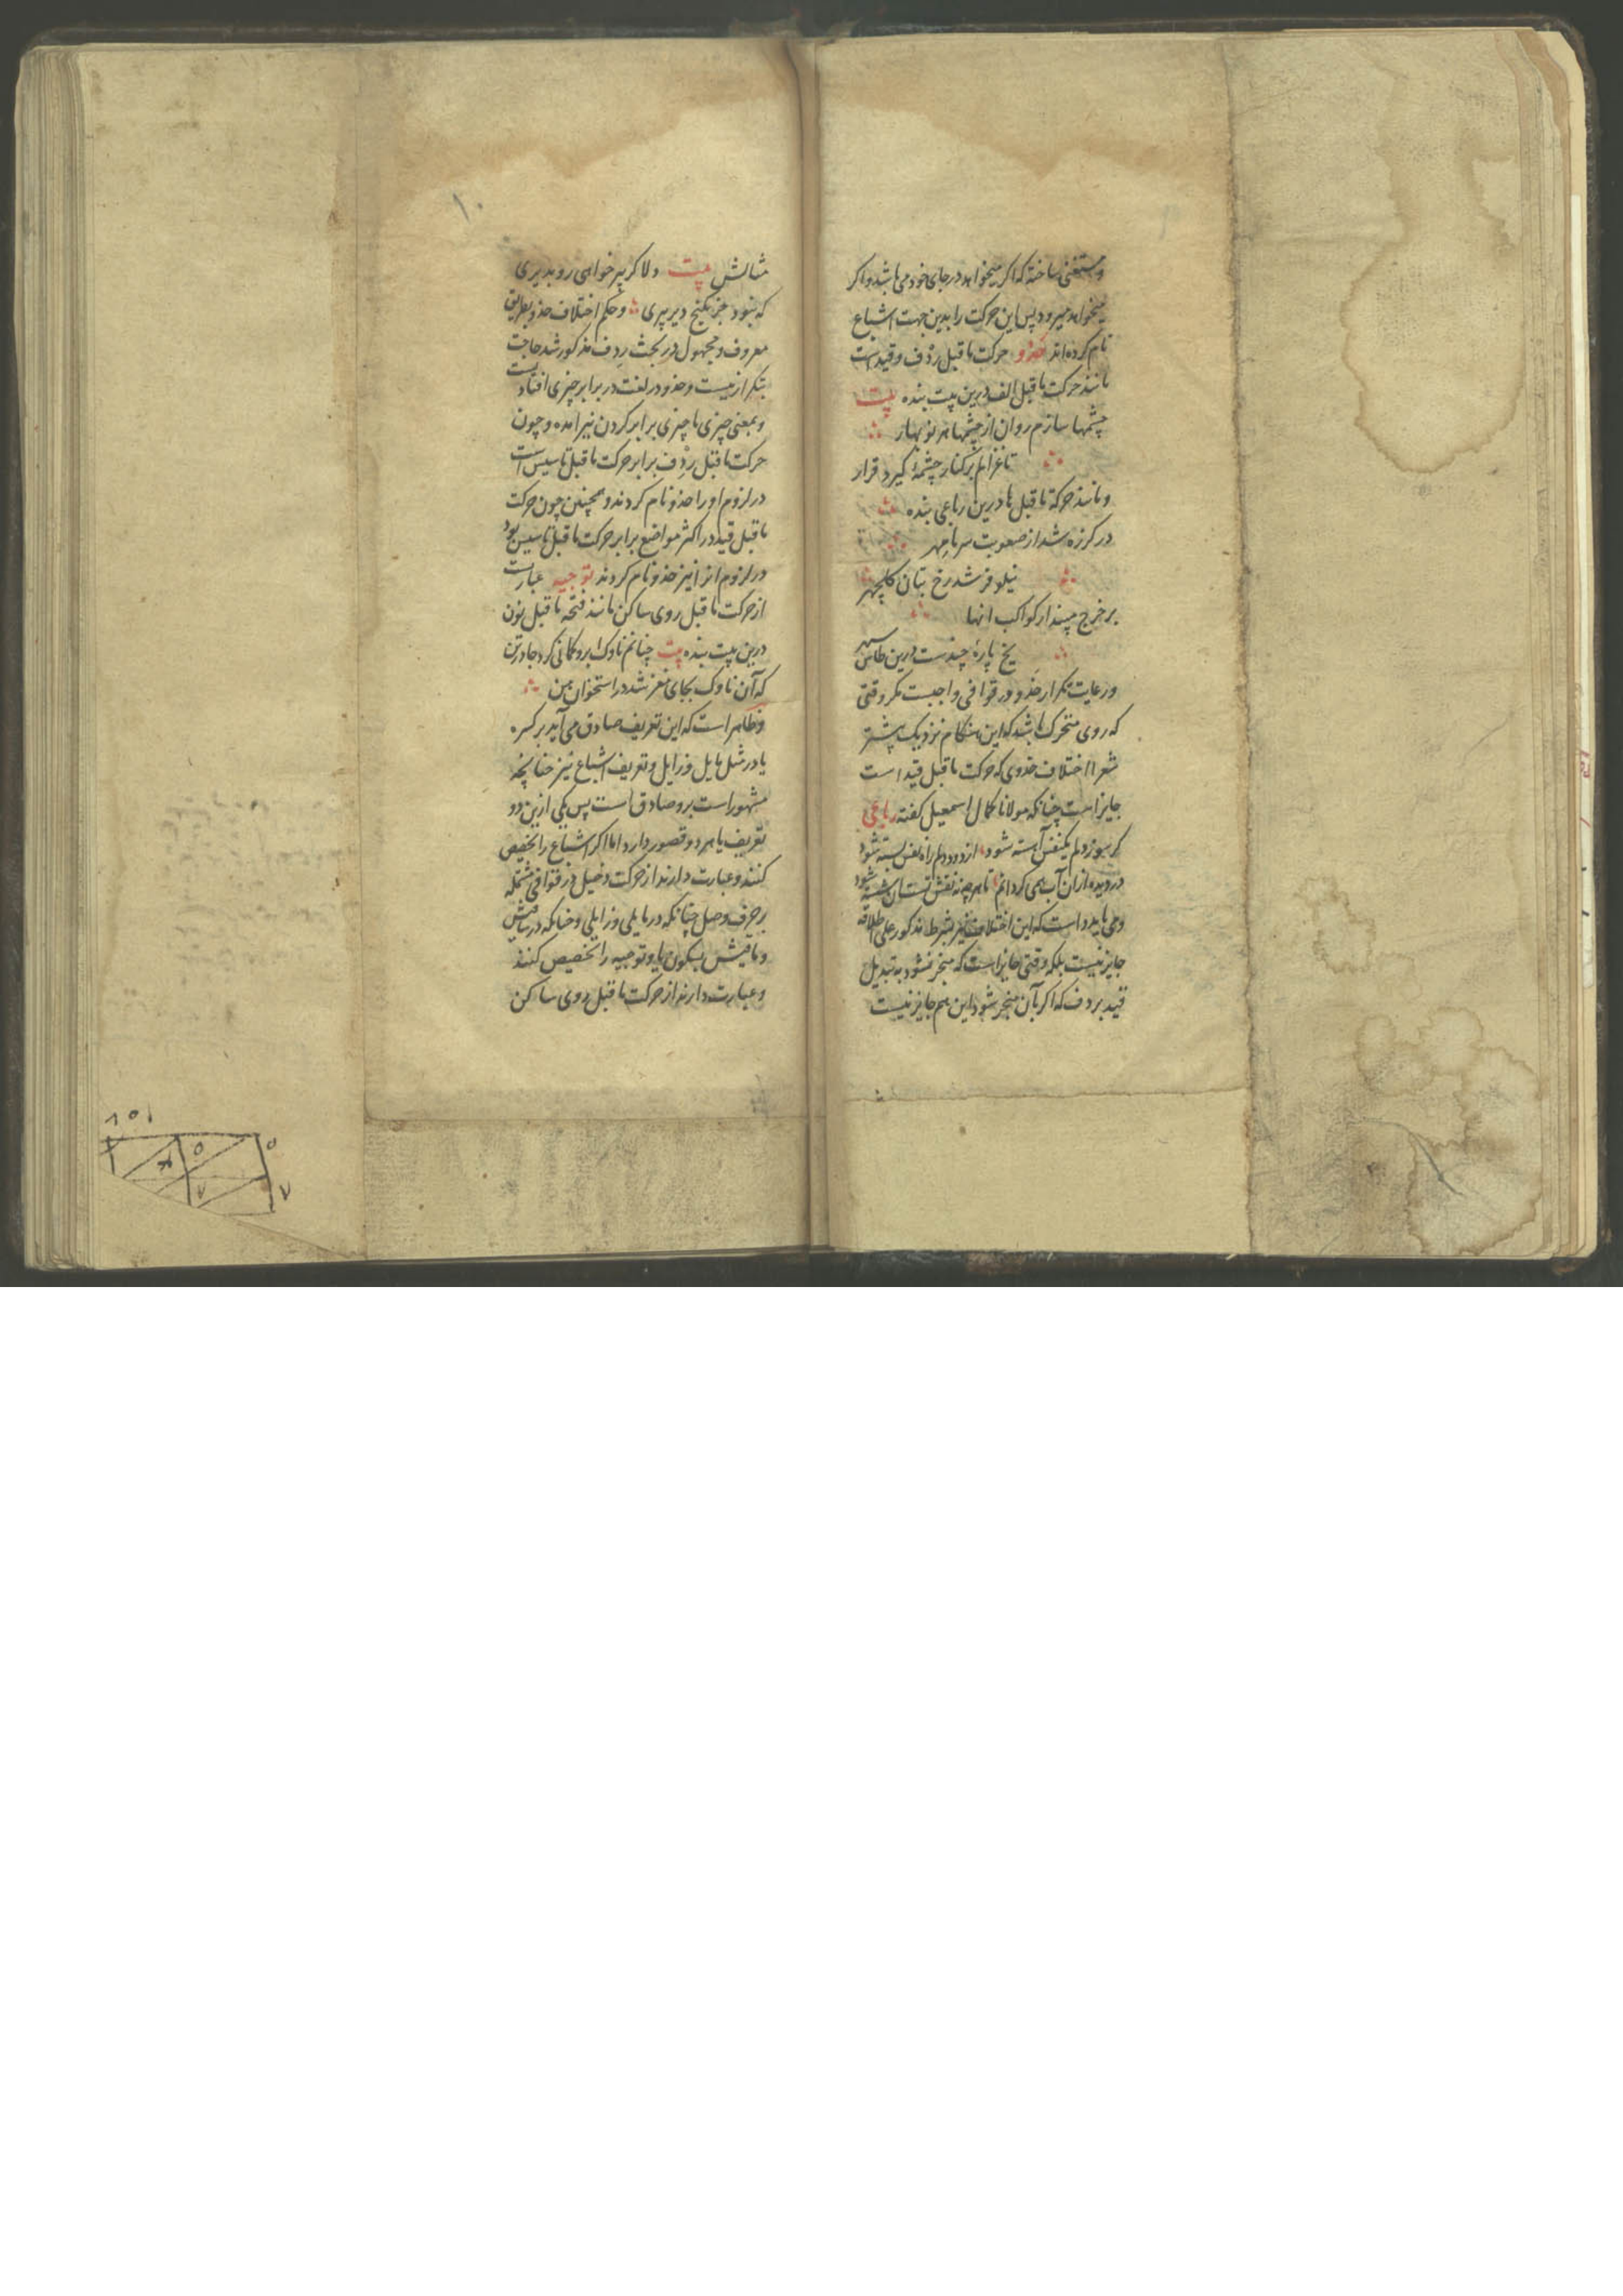 و مستغنی ساخته که اگر میخواهد در جای خود می باشد و اکر
میخواهد میرود پس این حرکت را بدین جهت اشباع
نام کرده اند حذو حرکت ماقبل ردف و قیدست
مانند حرکت ماقبل الف درین بیت بنده بیت
چشمها سازم روان از چشمها هر نوبهار
تا غزالم بر کنار چشمهٔ کیرد قرار
و مانند حرکة ماقبل ها درین رباعی بنده
در کرزه شد از صعوبت سرما مهر
نیلوفر شد رخ بتان کلچهر
بر خرج مپندار کواکب انها
یخ پارهٔ چندست درین طاس سپهر
و رعایت تکرار حذو در قوافی واجبست مکر وقتی
که روی متحرک باشد که این هنکام نزدیک بیشتر
شعرا اختلاف حذوی که حرکت ماقبل قید است
جایز است چنانکه مولانا کمال اسمعیل کفته رباعی
کر سوز دلم یکنفس آهسته شود از دود دلم راه نفس بسته شود
در دیده ازان آب همی کردانم تا هرچه نه نقش تست ازان شسته شود
و می باید دانست که این اختلاف نیز بشرط مذکور علی اطلاقه
جایز نیست بلکه وقتی جایز است که منجر نشود به تبدیل
قید بردف که اکر بآن منجر شود این هم جایز نیست
۱۰
مثالش بیت دلا کر پیر خواهی رو بدیری
که نبود جز بکنج دیر پیری و حکم اختلاف حذو بطریق
معروف و مجهول در بحث ردف مذکور شد حاجت
بتکرار نیست و حذو در لغت در برابر چیزی افتادنست
و بمعنی چیزی با چیزی برابر کردن نیز امده و چون
حرکت ماقبل ردف برابر حرکت ماقبل تاسیس است
در لزوم او را حذو نام کردند و همچنین چون حرکت
ماقبل قید در اکثر مواضع برابر حرکت ماقبل تاسیس بود
در لزوم انرا نیز حذو نام کردند توجیه عبارتست
از حرکت ماقبل روی ساکن مانند فتحه ماقبل نون
درین بیت بنده بیت چنانم ناوک ابرو کمانی کرد جا در تن
که آن ناوک بجای مغز شد در استخوان من
و ظاهر است که این تعریف صادق می آید بر کسره
یا در مثل مایل و زایل و تعریف اشباع نیز چنانچه
مشهور است برو صادق است پس یکی ازین دو
تعریف یا هر دو قصور دارد اما اکر اشباع را تخصیص
کنند و عبارت دارند از حرکت دخیل در قوافی مشتمله
بر حرف وصل چنانکه در مایلی و زایلی و چنانکه در
و مافیش بسکون یا و توجیه را تخصیص کنند
و عبارت دارند از حرکت ماقبل روی ساکن